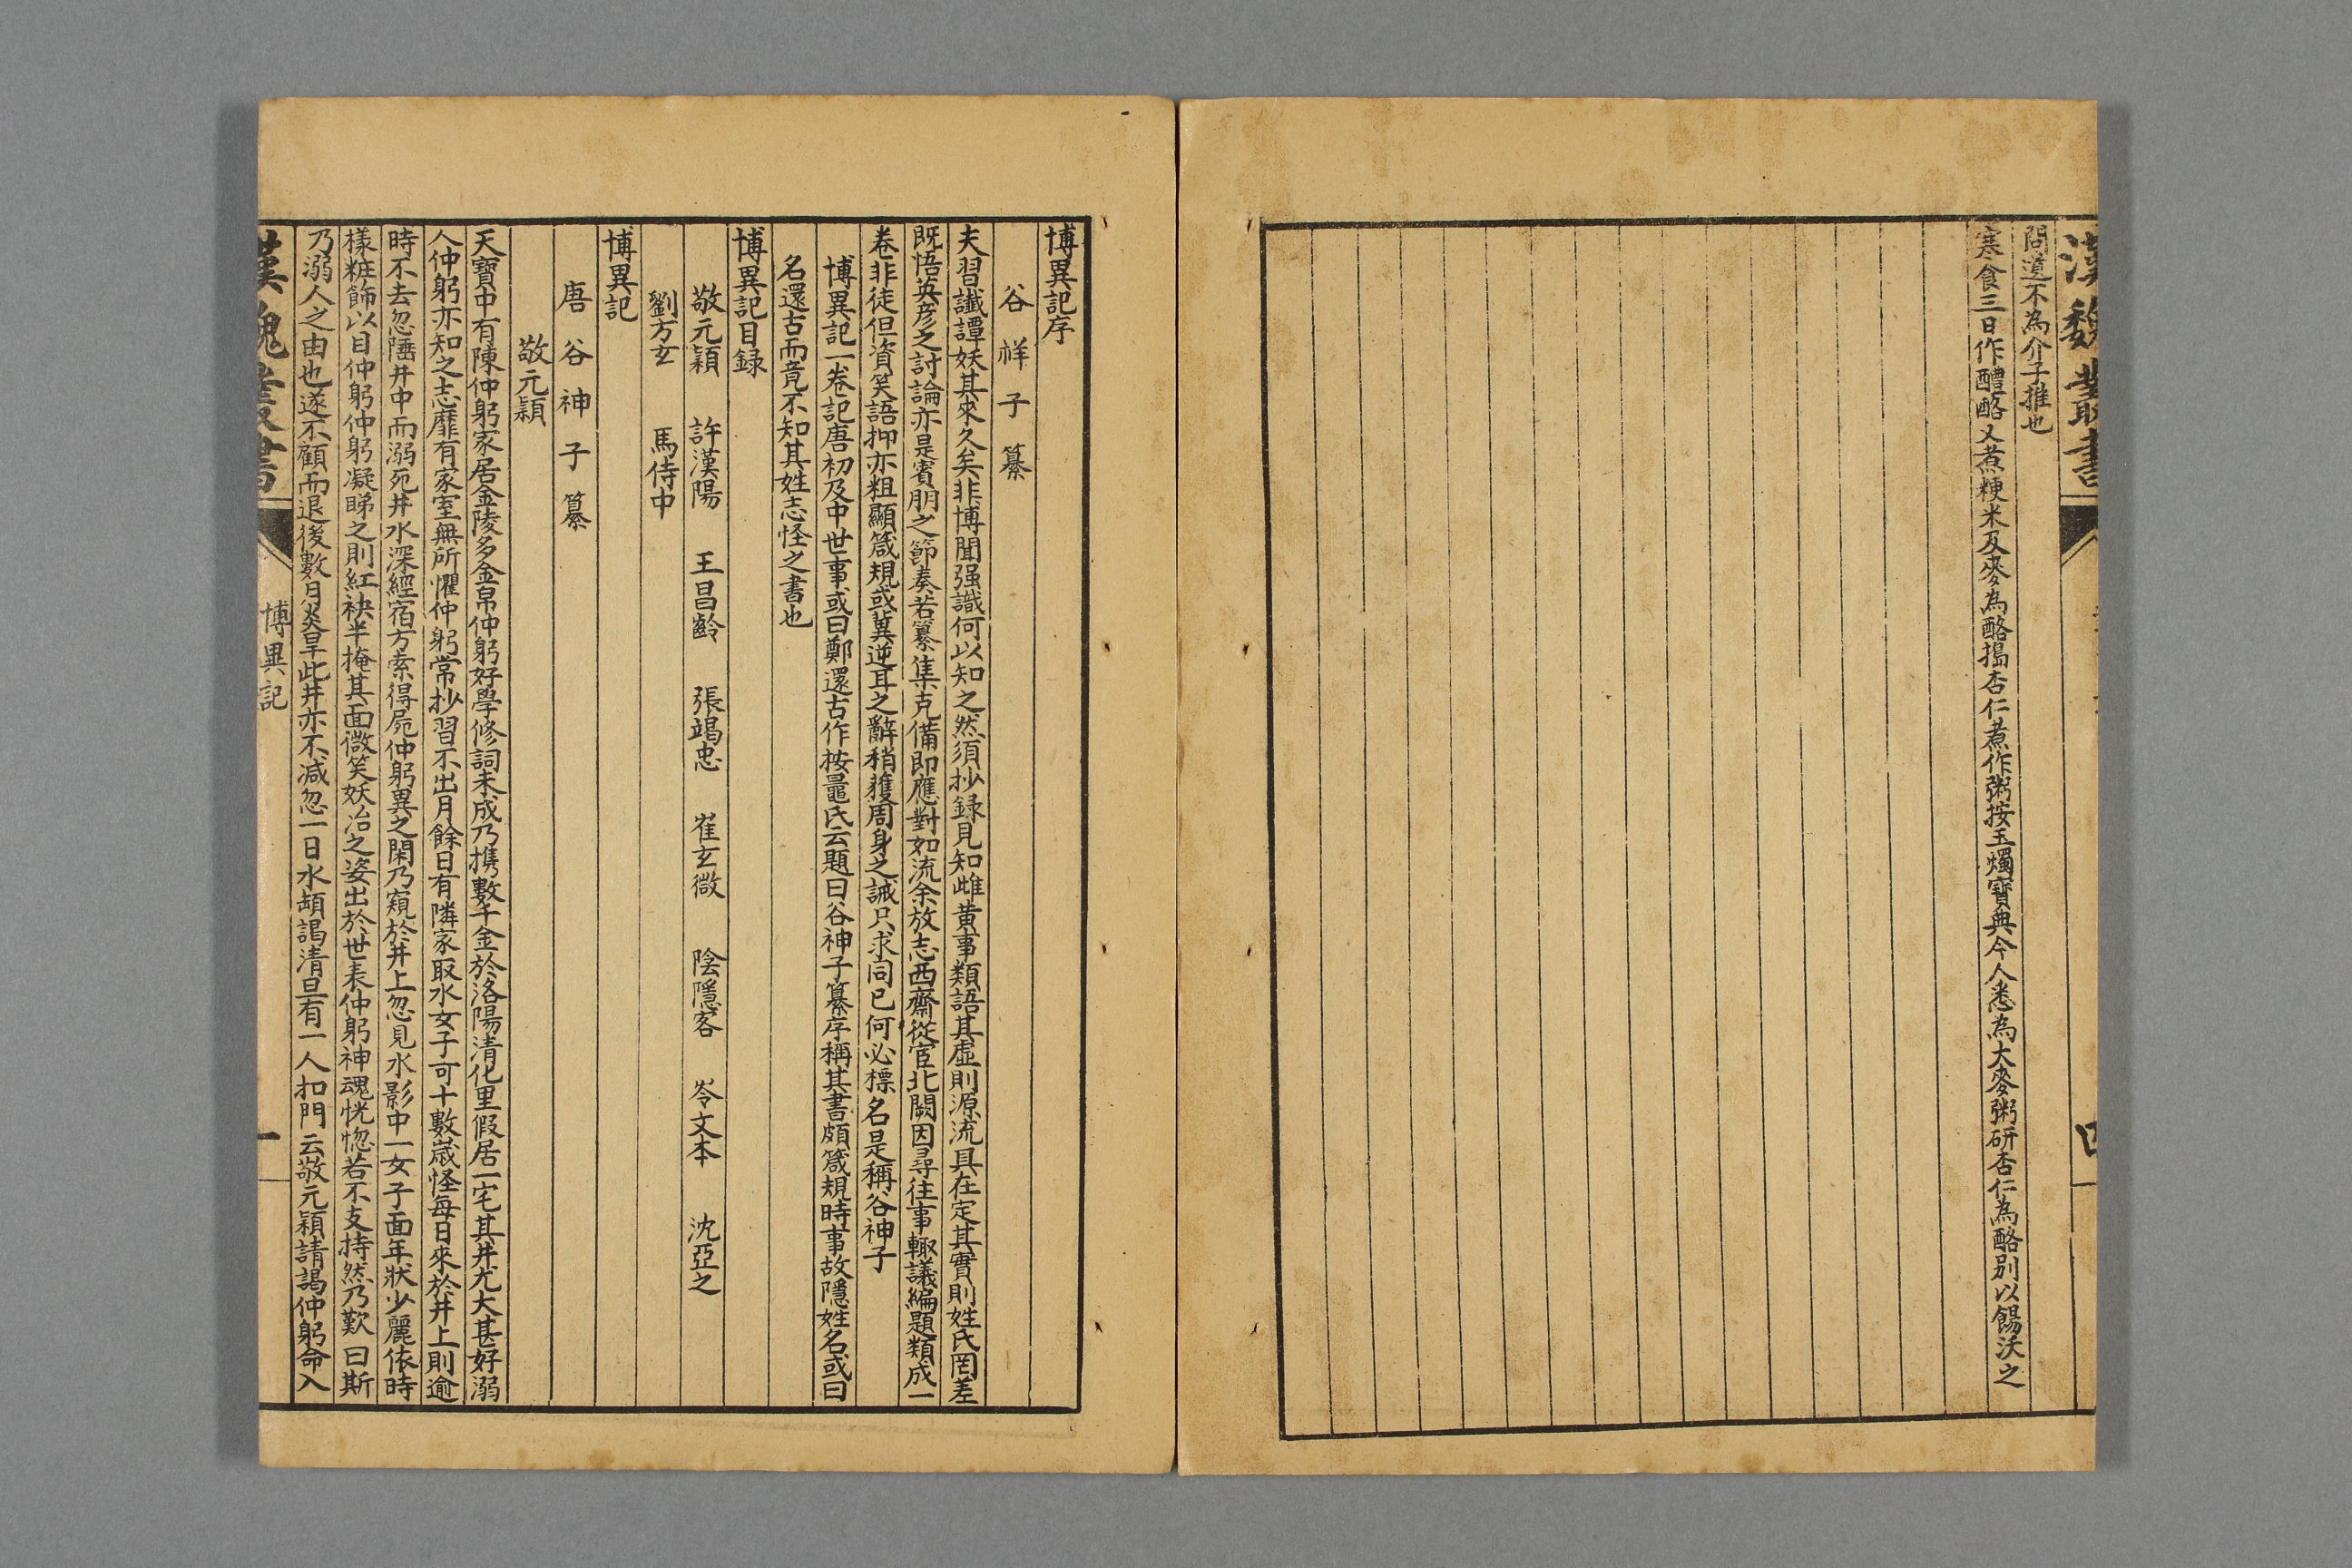 漢魏叢書
問道不為介子推也
寒食三日作醴酪又煮粳米及麥為酪搗杏仁煮作粥按玉燭寶典今人悉為大麥粥研杏仁為酪別以餳沃之
博異記序
谷祥子纂
夫習讖譚妖其來久矣非博聞强識何以知之然須抄録見知雌黄事類語其虛則源流具在定其實則姓氏罔差
既悟英彦之討論亦是賓朋之節奏若纂集克備即應對如流余放志西齋從宦北闕因尋往事輙議編題類成一
卷非徒但資笑語抑亦粗顯箴規或冀逆耳之辭稍獲周身之誡只求同已何必標名是稱谷神子
博異記一卷記唐初及中世事或曰鄭還古作按鼂氏云題曰谷神子纂序稱其書頗箴規時事故隱姓名或曰
名還古而竟不知其姓志怪之書也
博異記目録
敬元穎 許漢陽 王昌齡 張竭忠 崔玄微 陰隱客 岑文本 沈亞之
劉方玄 馬侍中
博異記
唐谷神子纂
敬元穎
天寶中有陳仲躬家居金陵多金帛仲躬好學修詞未成乃携數千金於洛陽清化里假居一宅其井尤大甚好溺
人仲躬亦知之志靡有家室無所懼仲躬常抄習不出月餘日有隣家取水女子可十數嵗怪每日來於井上則逾
時不去忽墮井中而溺死井水深經宿方索得屍仲躬異之閑乃窺於井上忽見水影中一女子面年狀少麗依時
樣粧飾以目仲躬仲躬凝睇之則紅袂半掩其面微笑妖冶之姿出於世表仲躬神魂恍惚若不支持然乃歎曰斯
乃溺人之由也遂不顧而退後數月炎旱此井亦不減忽一日水頓竭清旦有一人扣門云敬元穎請謁仲躬命入
漢魏叢書 博異記 一